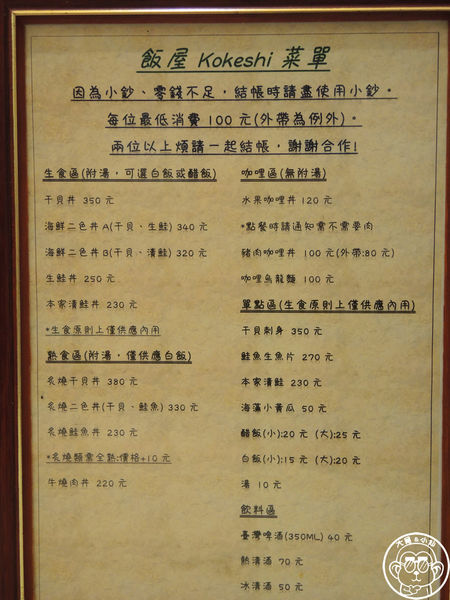 飯屋 Kokeshi 菜單
因為小鈔、零錢不足，結帳時請盡使用小鈔。
每位最低消費 100 元(外帶為例外)。
兩位以上煩請一起結帳，謝謝合作!
生食區(附湯，可選白飯或醋飯)
干貝丼 350 元
海鮮二色丼 A(干貝、生鮭) 340 元
海鮮二色丼 B(干貝、漬鮭) 320 元
生鮭丼 250 元
本家漬鮭丼 230 元
*生食原則上僅供應內用
熟食區(附湯，僅供應白飯)
炙燒干貝丼 380 元
炙燒二色丼(干貝、鮭魚) 330 元
炙燒鮭魚丼 230 元
*炙燒類需全熟:價格+10 元
牛燒肉丼 220 元
咖哩區(無附湯)
水果咖哩丼 120 元
*點餐時請通知需不需要肉
豬肉咖哩丼 100 元(外帶:80 元)
咖哩烏龍麵 100 元
單點區(生食原則上僅供應內用)
干貝刺身 350 元
鮭魚生魚片 270 元
本家漬鮭 230 元
海藻小黃瓜 50 元
醋飯(小):20 元 (大):25 元
白飯(小):15 元 (大):20 元
湯 10 元
飲料區
臺灣啤酒(350ML) 40 元
熱清酒 70 元
冰清酒 50 元
大貓&小貓